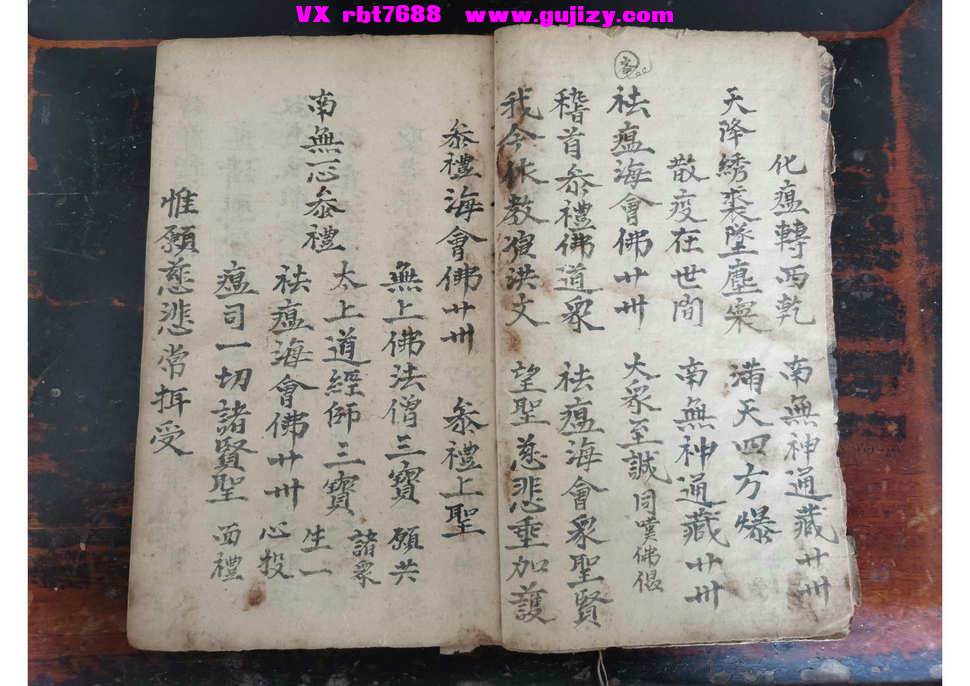 VX rbt7688 www.gujizy.com
化瘟轉西乾 南無神通藏廾卅
天降綉裘墜塵寰 滿天四方爆
散疫在世間 南無神通藏廾卅
祛瘟海會佛廾卅 大眾至誠同嘆佛偈
稽首叅禮佛道眾 祛瘟海會眾聖賢
我今依教演洪文 望聖慈悲垂加護
叅禮海會佛廾卅 叅禮上聖
無上佛法僧三寶 願共
南無一心叅禮 太上道經師三寶 諸眾
祛瘟海會佛廾卅 生一
瘟司一切諸賢聖 心投
面禮
惟願慈悲常拜受